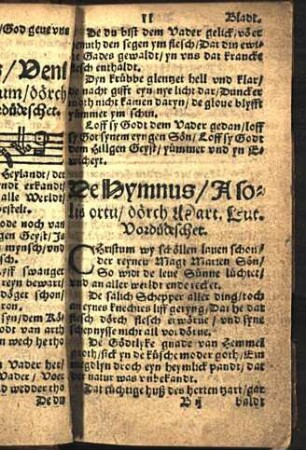 /God geue vns
/Veni
um/dörch
rdüdeschet.
Heylandt/der
ndt erkandt/
alle Werldt/
stelt.
ode noch van
gen Geyst/Js
mynsch/vnd
ck swanger
reyn bewart/
döget schon/
ron.
syn/dem Kö-
odt van arth
wech he tho
her Vader/
Vader/Voer
d wedder tho
De du
11 Bladt.
De du bist dem Vader gelick/vöer
henuth den segen ym flesch/Dat din ewi-
ge Gades gewaldt/yn vns dat krancke
flesch entholdt.
Dyn krübbe glentzet hell vnd klar/
de nacht gifft eyn nye licht dar/Duncker
moth nicht kamen daryn/de gloue blyfft
ymmer ym schin.
Loff sy Godt dem Vader gedan/loff
sy Got synem eyngen Sön/Loff sy Godt
dem Hilgen Geyst/ymmer vnd yn E-
wicheyt.
De Hymnus/A so-
lis ortu/dörch Mart. Lut.
Vordüdeschet.
CHristum wy schöllen lauen schon/
der reynen Magt Marien Sön/
So widt de leue Sünne lüchtet/
vnd an aller werldt ende recket.
De salich Schepper aller ding/toch
an eynes knechtes lyff gering/Dat he dat
flesch dörch flesch erwörue/vnd syne
schepnysse nicht all vordörue.
De Gödtlyke gnade van Hemmel
groth/sick yn de küsche moder goth/Ein
megdlyn droch eyn heymlick pandt/dat
der natur was vnbekandt.
Dat tüchtige huß des herten tzart/gar
B iij baldt